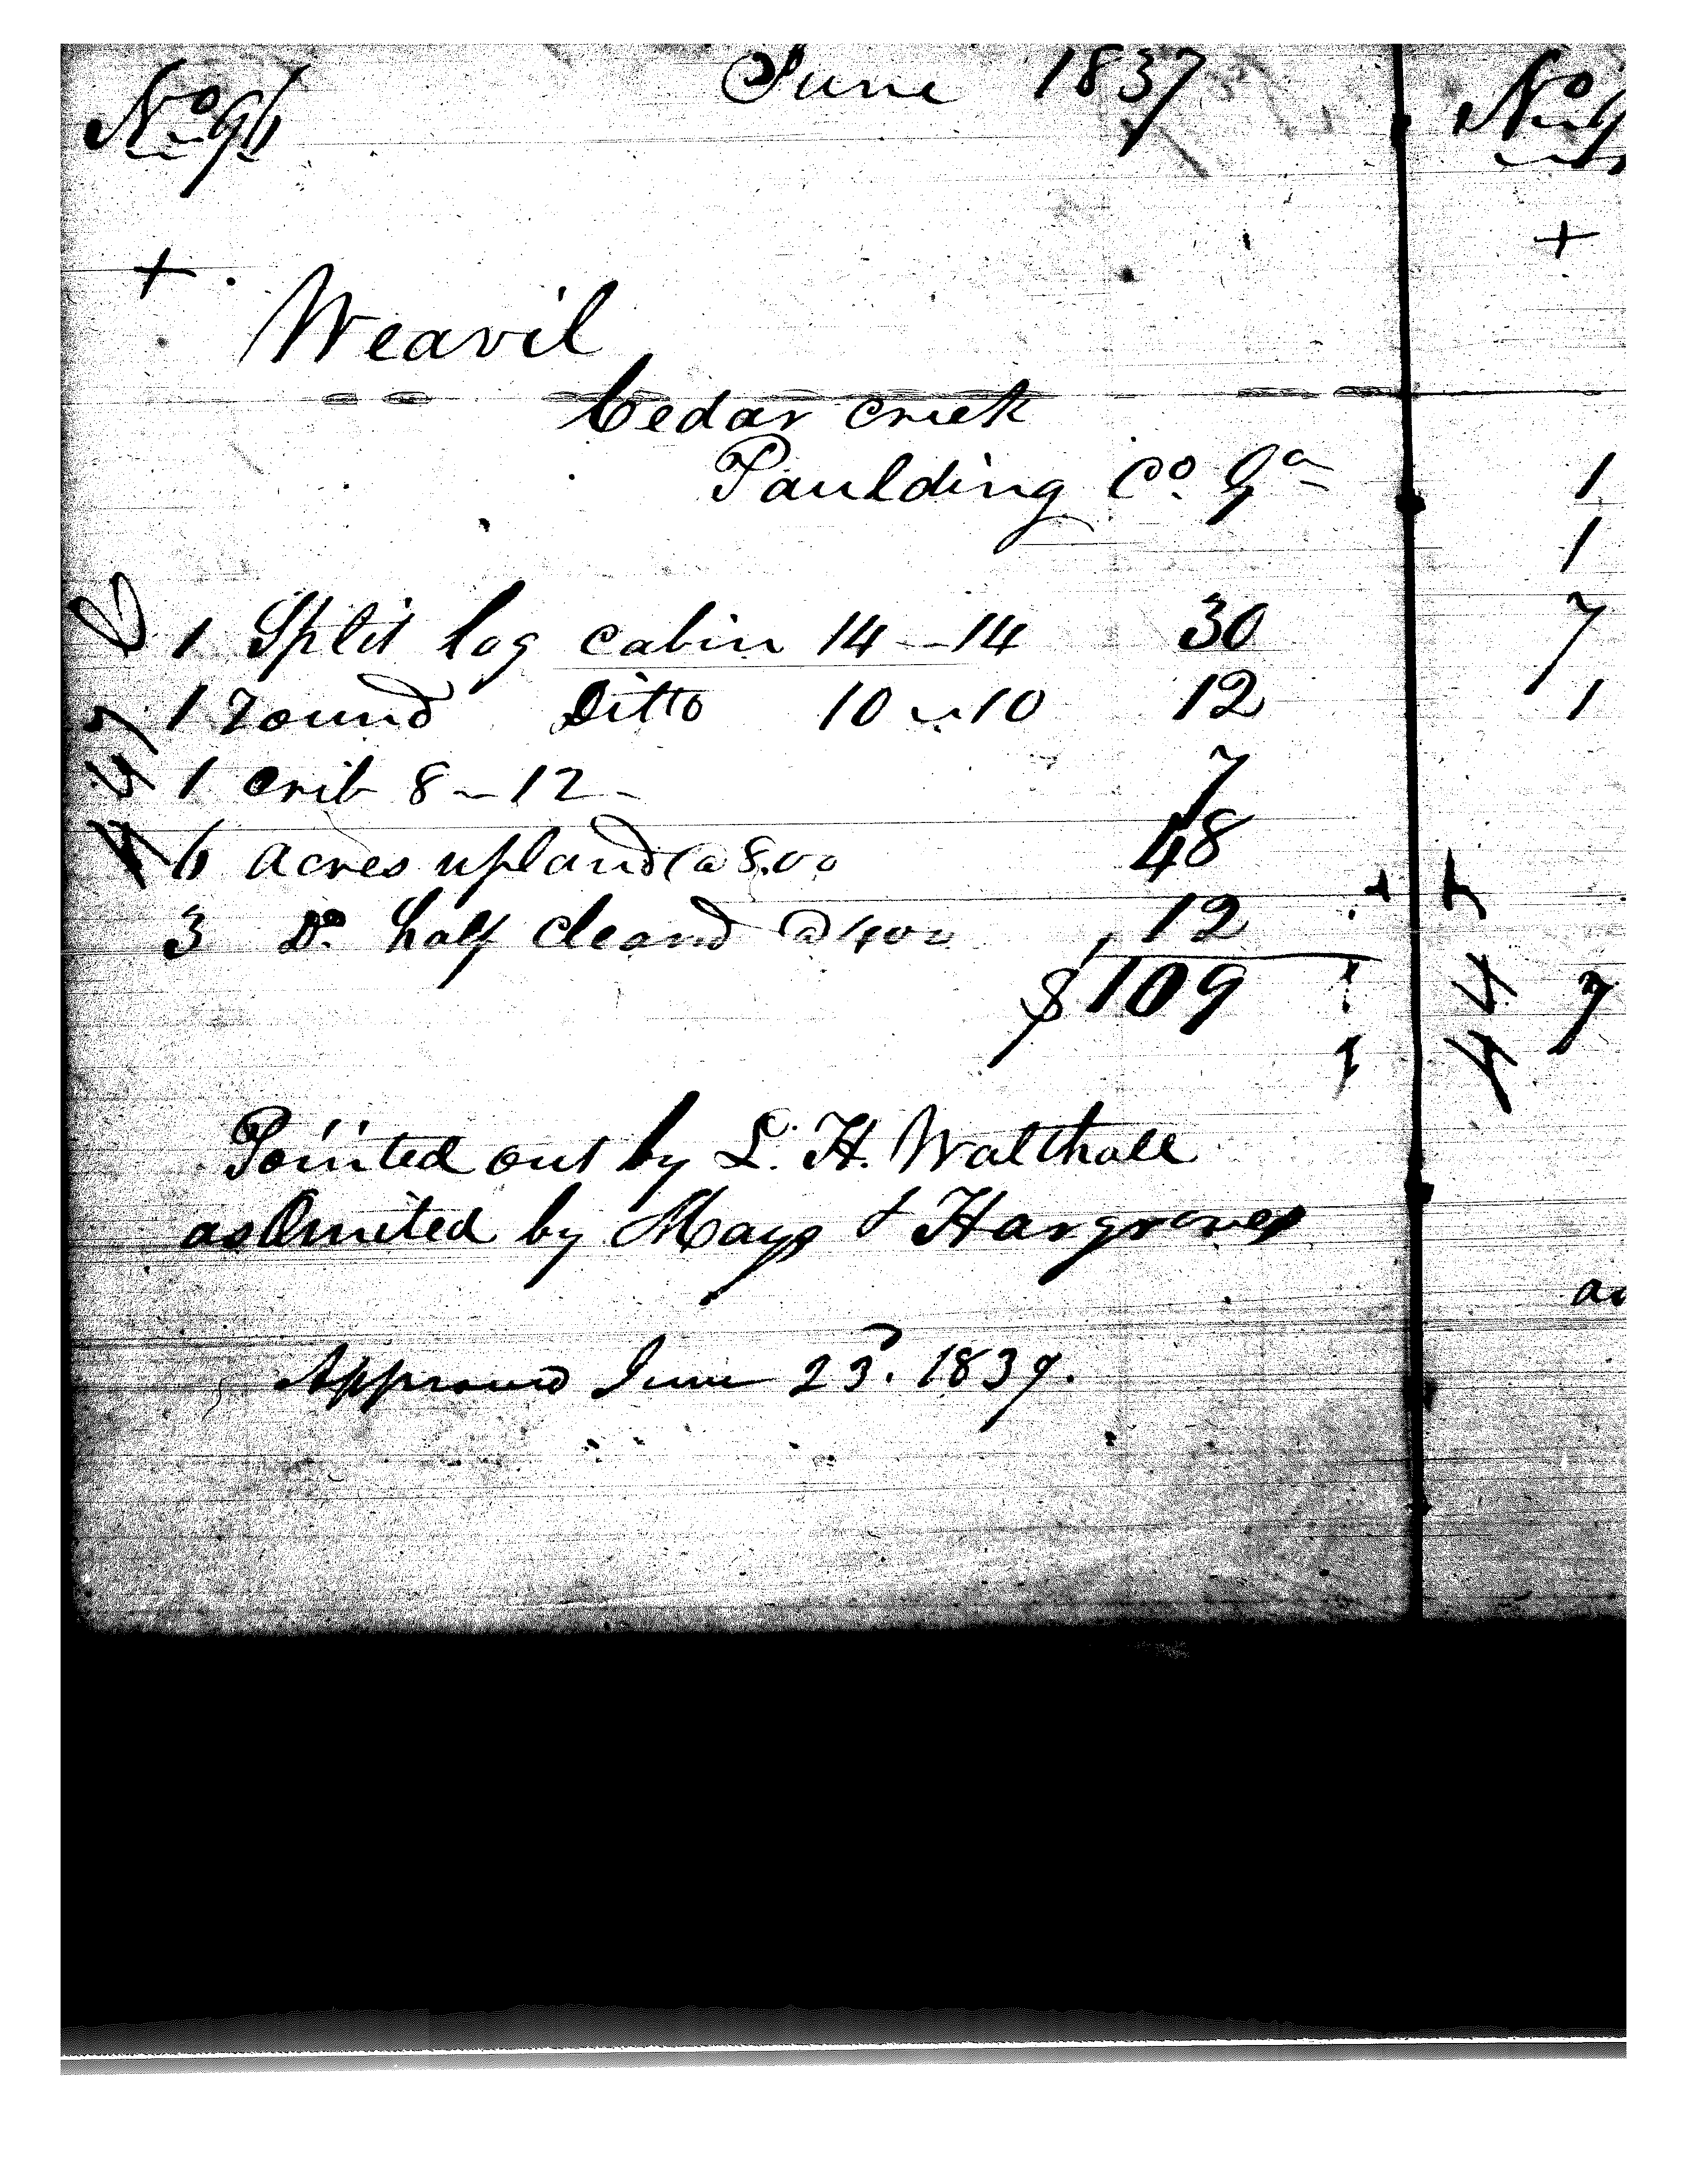 June 1837
No. 96
+
Weavil
Cedar creek
Paulding Co. Ga
1 Split log cabin 14 - 14 30
1 round Ditto 10 - 10 12
1 crib 8 - 12 - 7
6 acres upland @ 8.00 48
3 Do. half cleard @ 400 12
$109
Pointed out by L. H. Walthall
as Omited by Mays & Hargroves
Approved June 23. 1837.
No.
+
1
1
7
1
7